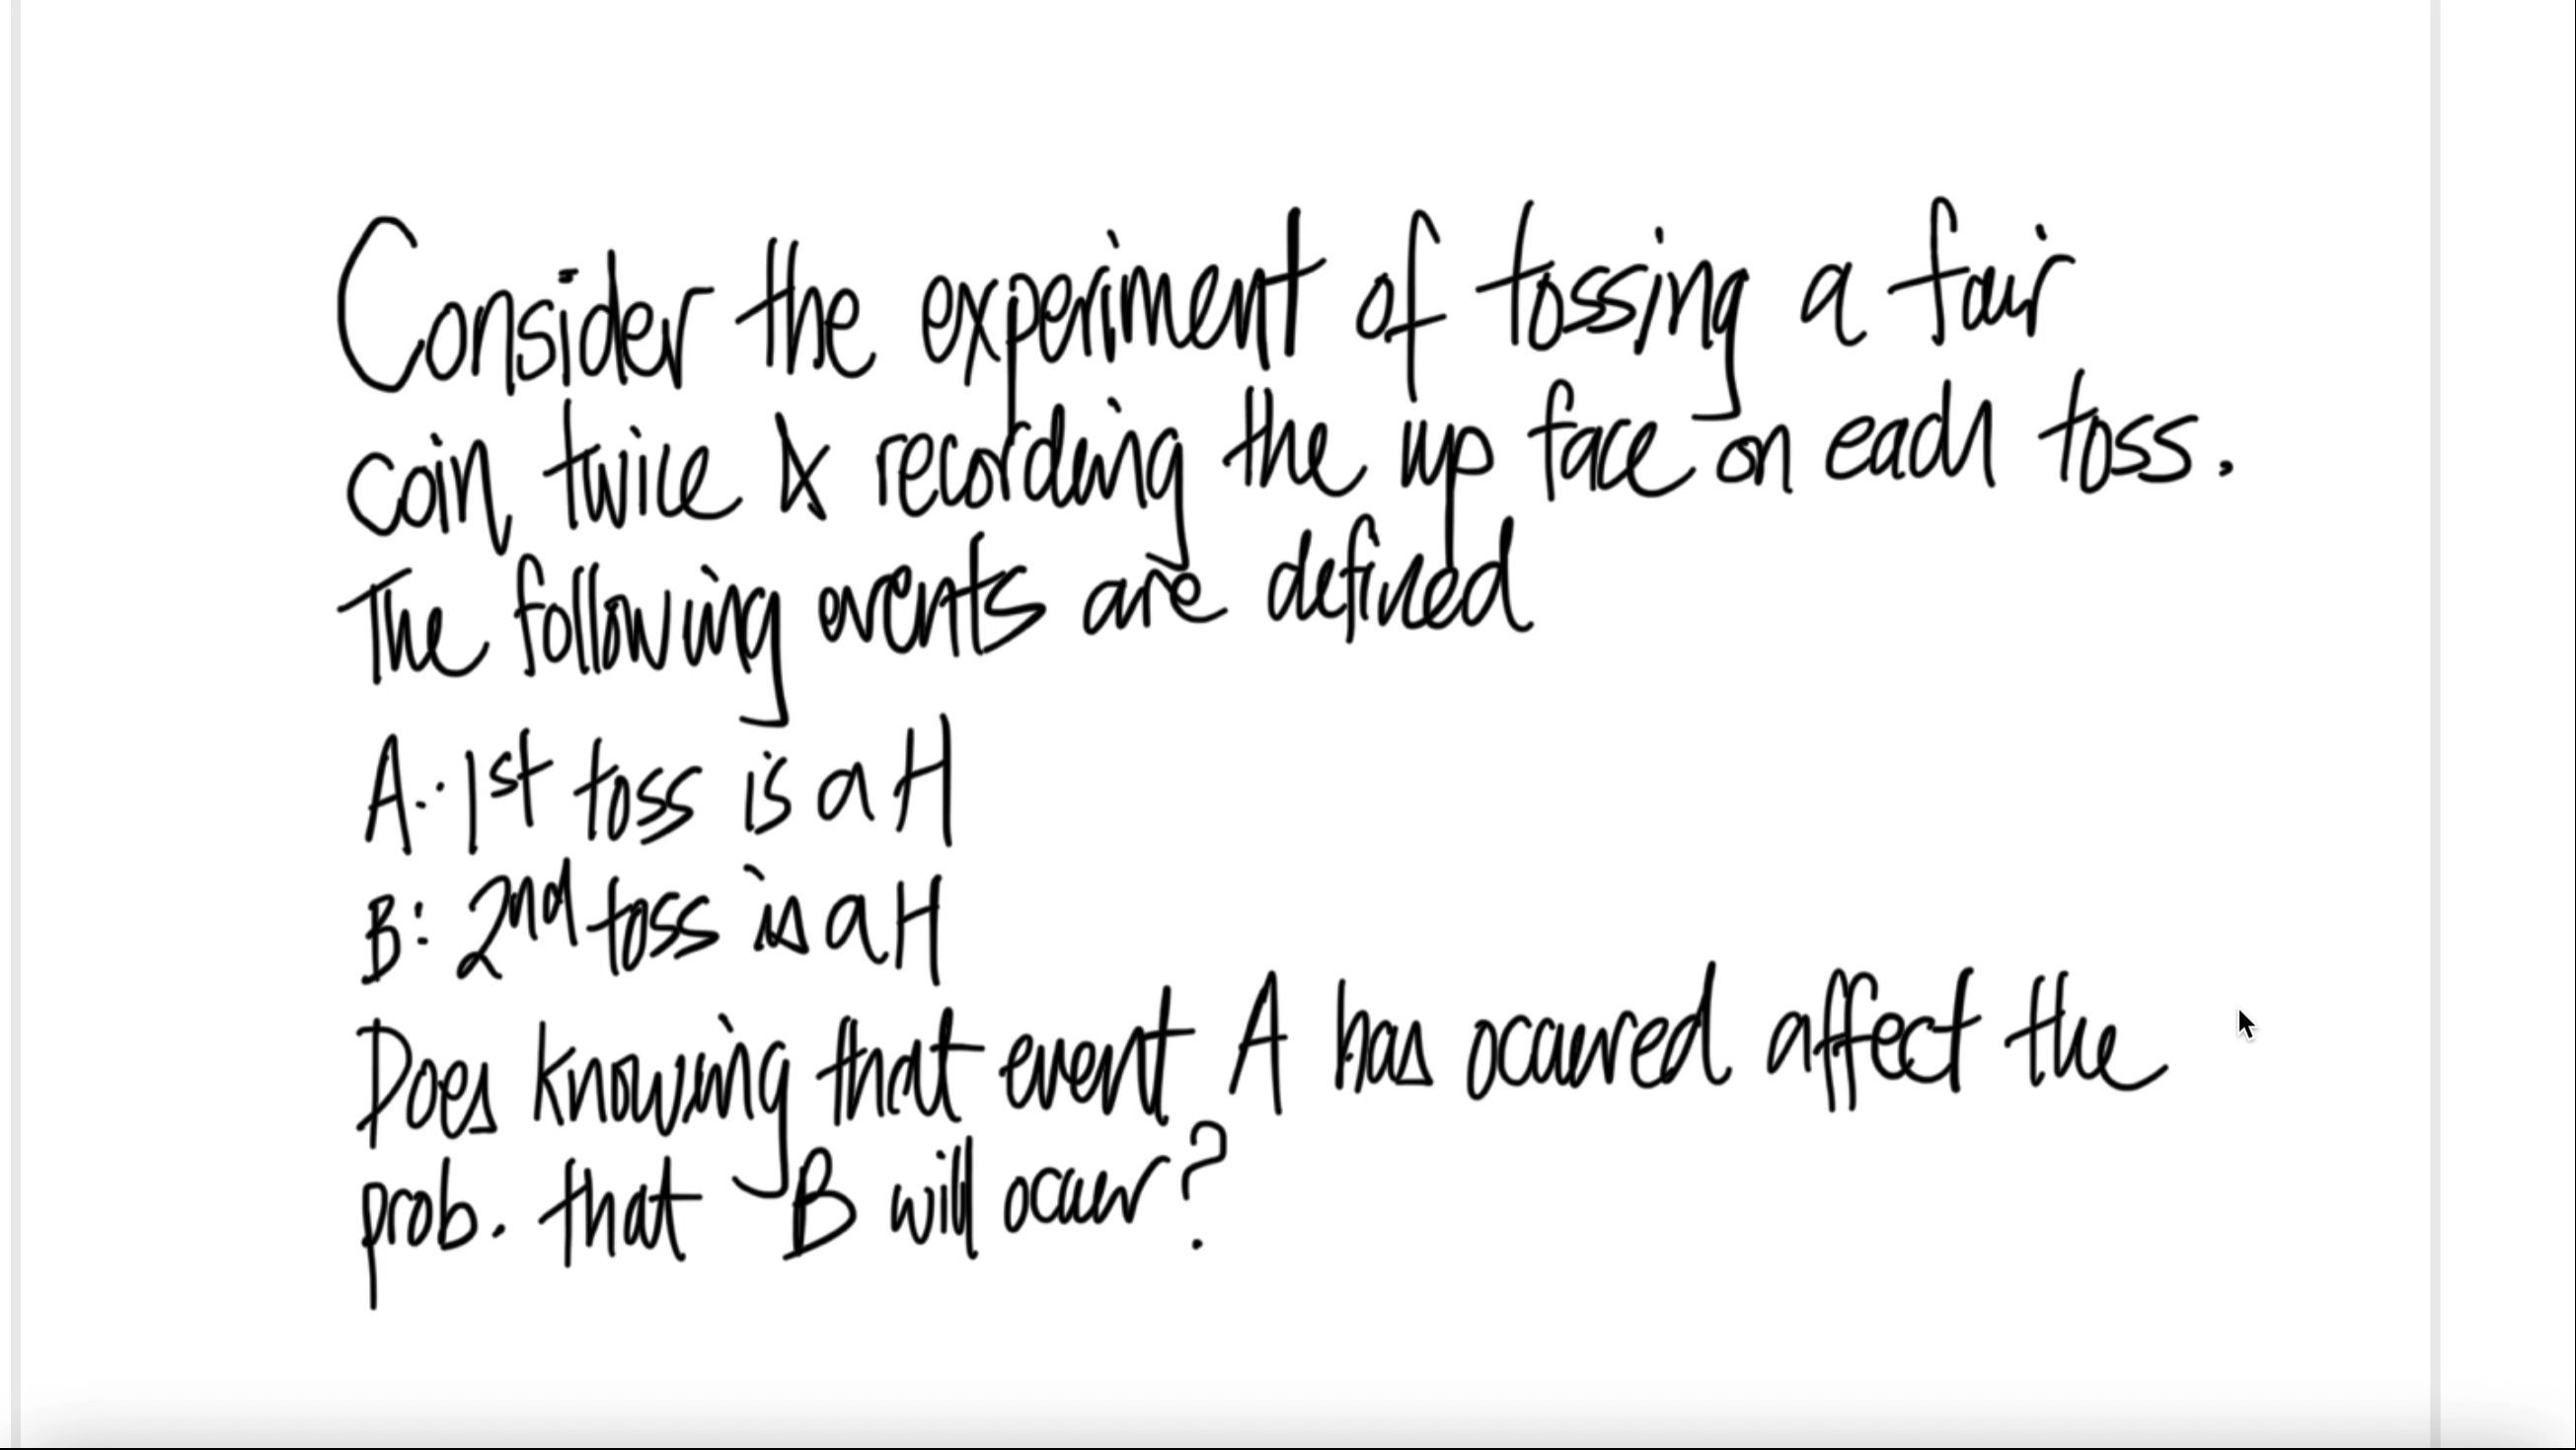 Consider the experiment of tossing a fair
coin twice & recording the up face on each toss.
The following events are defined
A: 1st toss is a H
B: 2nd toss is a H
Does knowing that event A has occured affect the
prob. that B will occur?